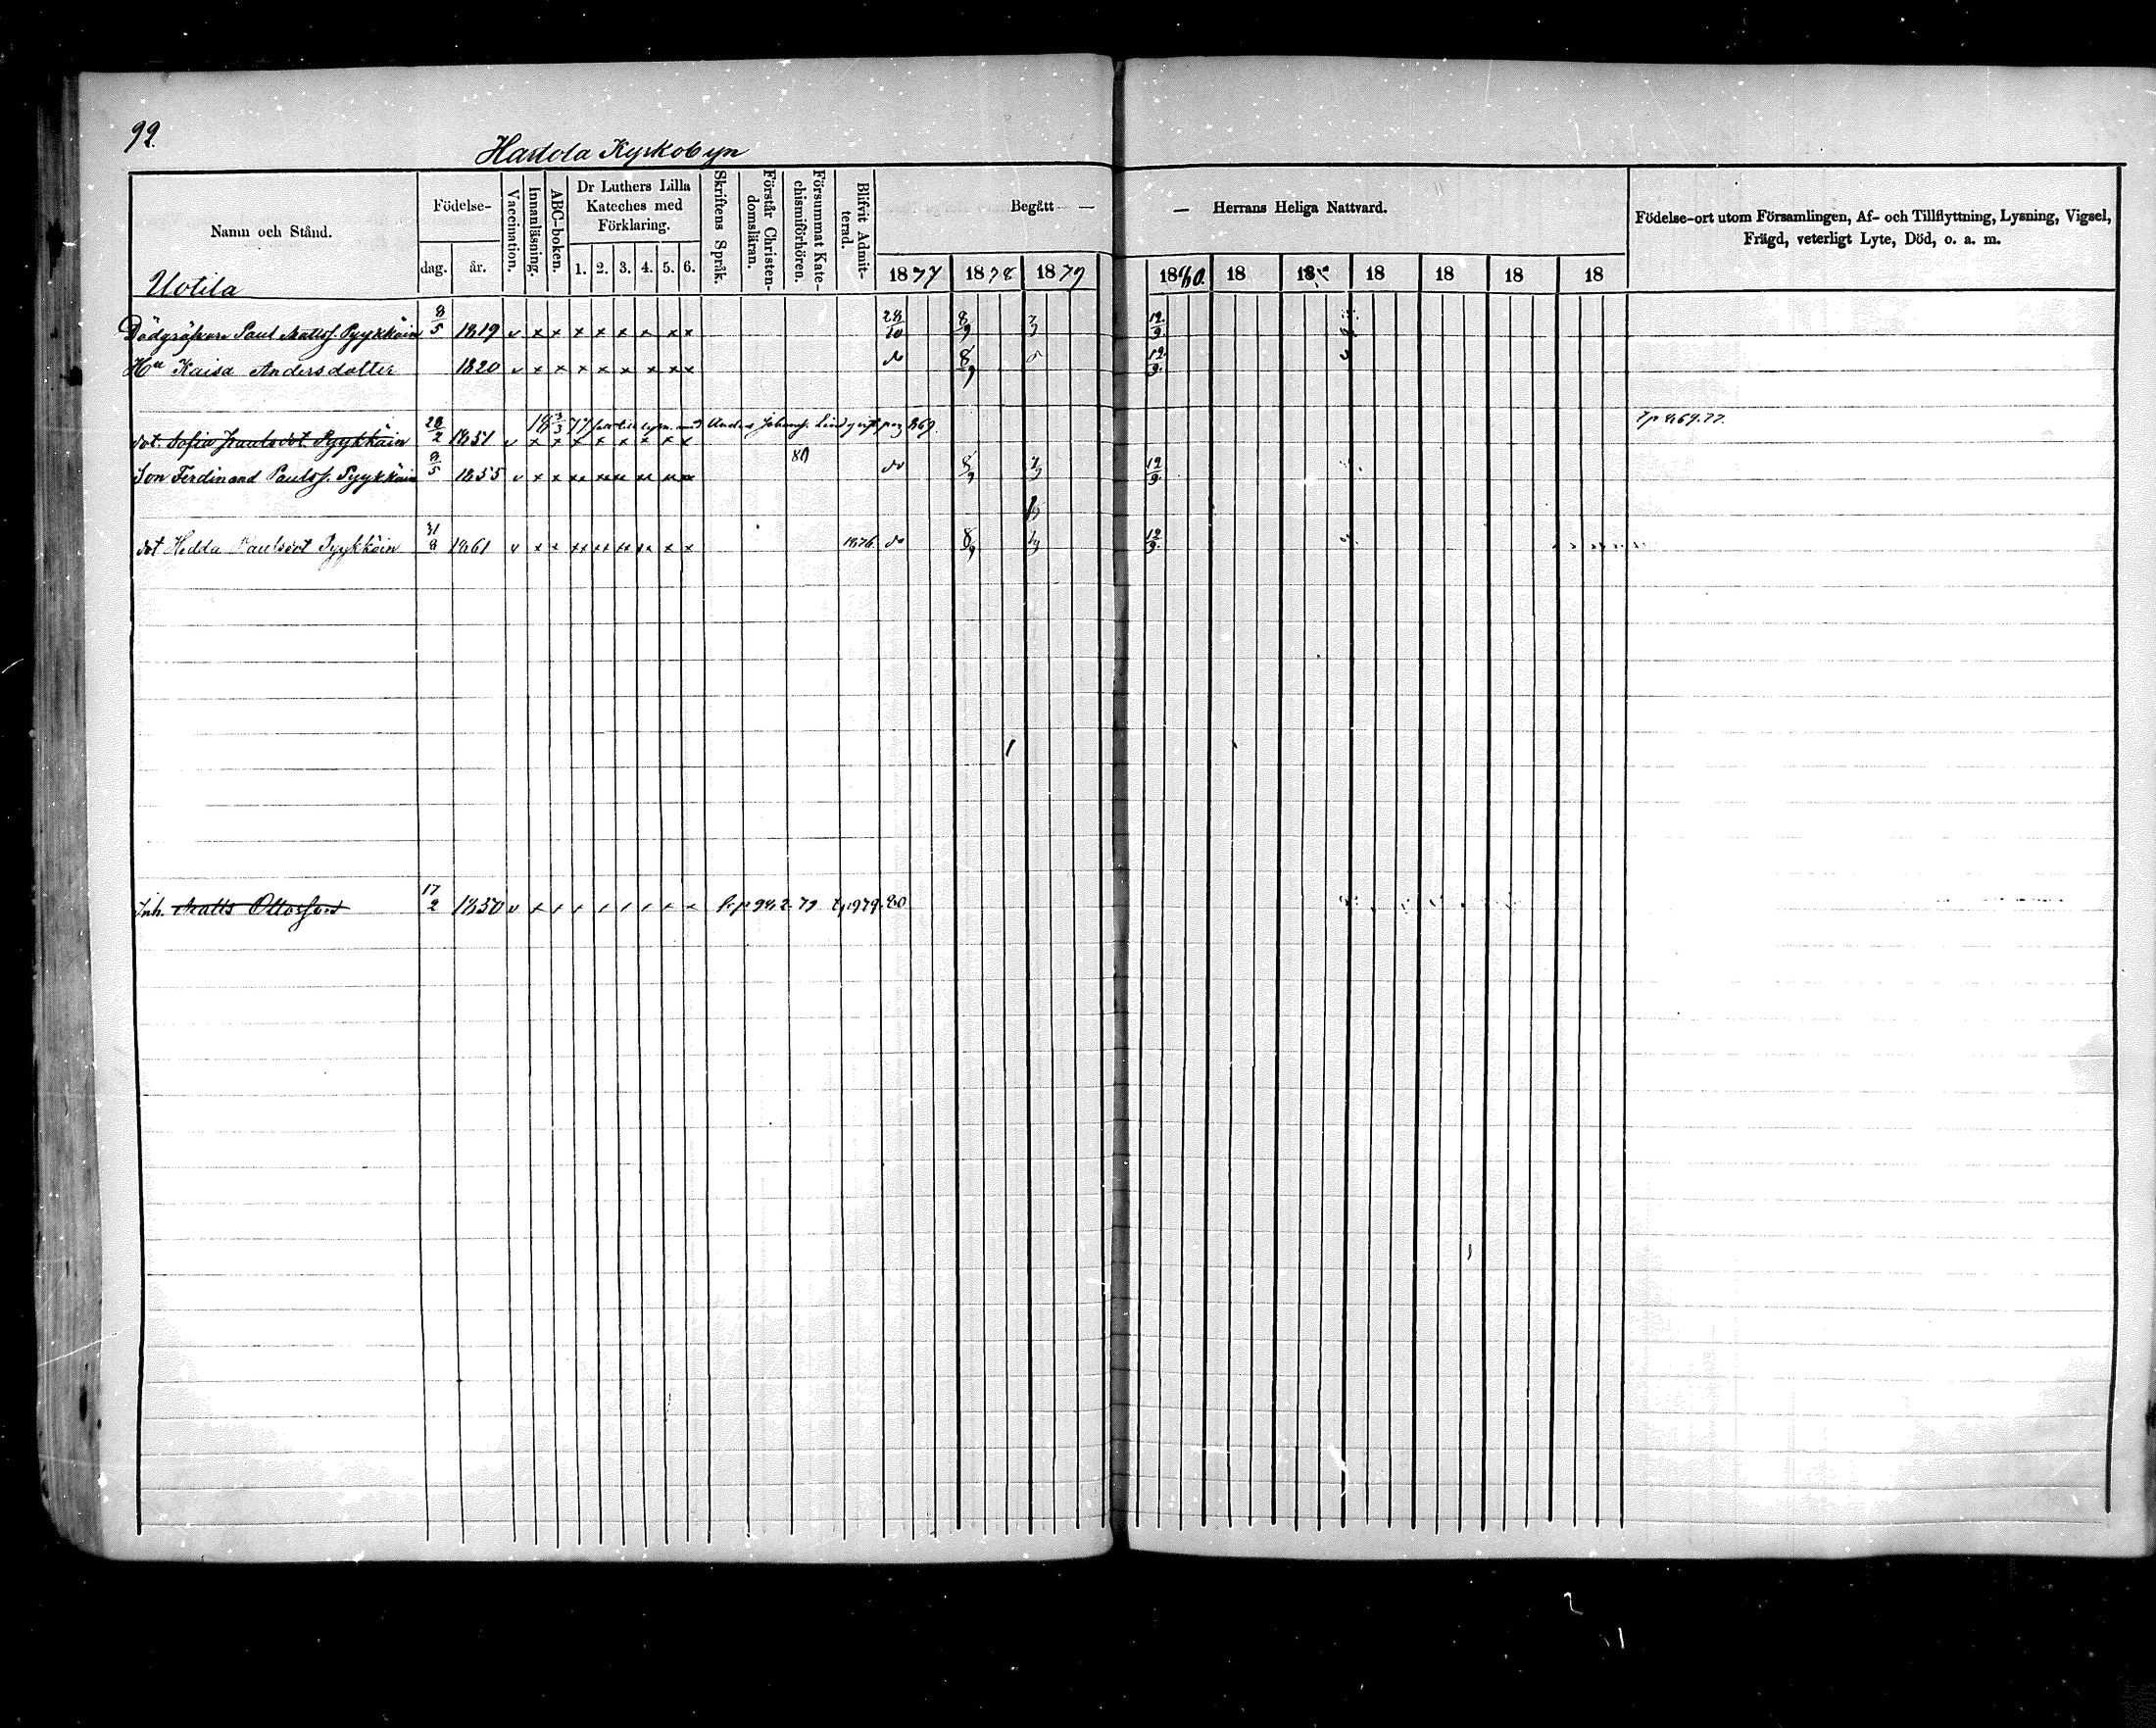 92.
Hartola Kyrkobyn
Namn och Stånd.
Födelse-
dag. år.
Vaccination.
Innanläsning.
ABC-boken.
Dr Luthers Lilla
Kateches med
Förklaring.
1. 2. 3. 4. 5. 6.
Skriftens Språk.
Förstår Christen-
domsläran.
Försummat Kate-
chismiförhören.
Blifvit Admit-
terad.
Begått —
— Herrans Heliga Nattvard.
1877 1878 1879 1880. 18 18 18 18 18 18
Födelse-ort utom Församlingen, Af- och Tillflyttning, Lysning, Vigsel,
Frägd, veterligt Lyte, Död, o. a. m.
Uotila
Dödgräfvare Paul Matts. Pyykköin 8/5 1819 v x x x x x x x x 28/10 8/9 7/9 12/9.
Hu Kaisa Andersdotter 1820 v x x x x x x x x do 8/9 12/9.
18 3/3 77 till lysn. med Anders Johans. Lindqvist pag 869.
dot. Sofia Paulsdot. Pyykköin 28/2 1851 v x x x x x x x x
Son Ferdinand Pauls. Pyykköin 8/5 1855 v x x 80 do 8/9 7/9 12/9.
dot Hedda Paulsdot Pyykköin 31/8 1861 v x x 1876. do 8/9 12/9.
Inh. Matts Ottosson 17/2 1850 v x fr. p 98.2.79 t. p 979.80